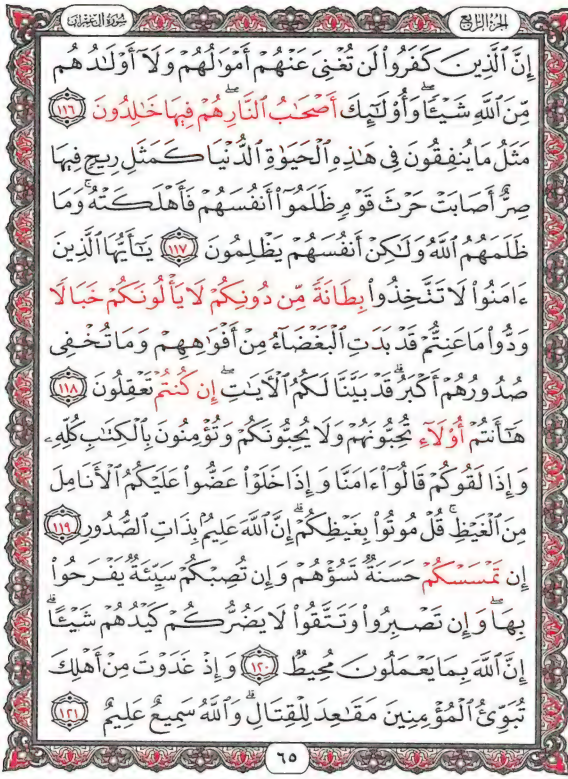 الجزء الرابع سورة آل عمران
إِنَّ ٱلَّذِينَ كَفَرُواْ لَن تُغْنِىَ عَنْهُمْ أَمْوَٰلُهُمْ وَلَآ أَوْلَـٰدُهُم
مِّنَ ٱللَّهِ شَيْـًٔا ۖ وَأُوْلَـٰٓئِكَ أَصْحَـٰبُ ٱلنَّارِ ۖ هُمْ فِيهَا خَـٰلِدُونَ ١١٦
مَثَلُ مَا يُنفِقُونَ فِى هَـٰذِهِ ٱلْحَيَوٰةِ ٱلدُّنْيَا كَمَثَلِ رِيحٍ فِيهَا
صِرٌّ أَصَابَتْ حَرْثَ قَوْمٍ ظَلَمُوٓاْ أَنفُسَهُمْ فَأَهْلَكَتْهُ ۚ وَمَا
ظَلَمَهُمُ ٱللَّهُ وَلَـٰكِنْ أَنفُسَهُمْ يَظْلِمُونَ ١١٧ يَـٰٓأَيُّهَا ٱلَّذِينَ
ءَامَنُواْ لَا تَتَّخِذُواْ بِطَانَةً مِّن دُونِكُمْ لَا يَأْلُونَكُمْ خَبَالًا
وَدُّواْ مَا عَنِتُّمْ قَدْ بَدَتِ ٱلْبَغْضَآءُ مِنْ أَفْوَٰهِهِمْ وَمَا تُخْفِى
صُدُورُهُمْ أَكْبَرُ ۚ قَدْ بَيَّنَّا لَكُمُ ٱلْـَٔايَـٰتِ ۖ إِن كُنتُمْ تَعْقِلُونَ ١١٨
هَـٰٓأَنتُمْ أُوْلَآءِ تُحِبُّونَهُمْ وَلَا يُحِبُّونَكُمْ وَتُؤْمِنُونَ بِٱلْكِتَـٰبِ كُلِّهِۦ
وَإِذَا لَقُوكُمْ قَالُوٓاْ ءَامَنَّا وَإِذَا خَلَوْاْ عَضُّواْ عَلَيْكُمُ ٱلْأَنَامِلَ
مِنَ ٱلْغَيْظِ ۚ قُلْ مُوتُواْ بِغَيْظِكُمْ ۗ إِنَّ ٱللَّهَ عَلِيمٌۢ بِذَاتِ ٱلصُّدُورِ ١١٩
إِن تَمْسَسْكُمْ حَسَنَةٌ تَسُؤْهُمْ وَإِن تُصِبْكُمْ سَيِّئَةٌ يَفْرَحُواْ
بِهَا ۖ وَإِن تَصْبِرُواْ وَتَتَّقُواْ لَا يَضُرُّكُمْ كَيْدُهُمْ شَيْـًٔا ۗ
إِنَّ ٱللَّهَ بِمَا يَعْمَلُونَ مُحِيطٌ ١٢٠ وَإِذْ غَدَوْتَ مِنْ أَهْلِكَ
تُبَوِّئُ ٱلْمُؤْمِنِينَ مَقَـٰعِدَ لِلْقِتَالِ ۗ وَٱللَّهُ سَمِيعٌ عَلِيمٌ ١٢١
٦٥